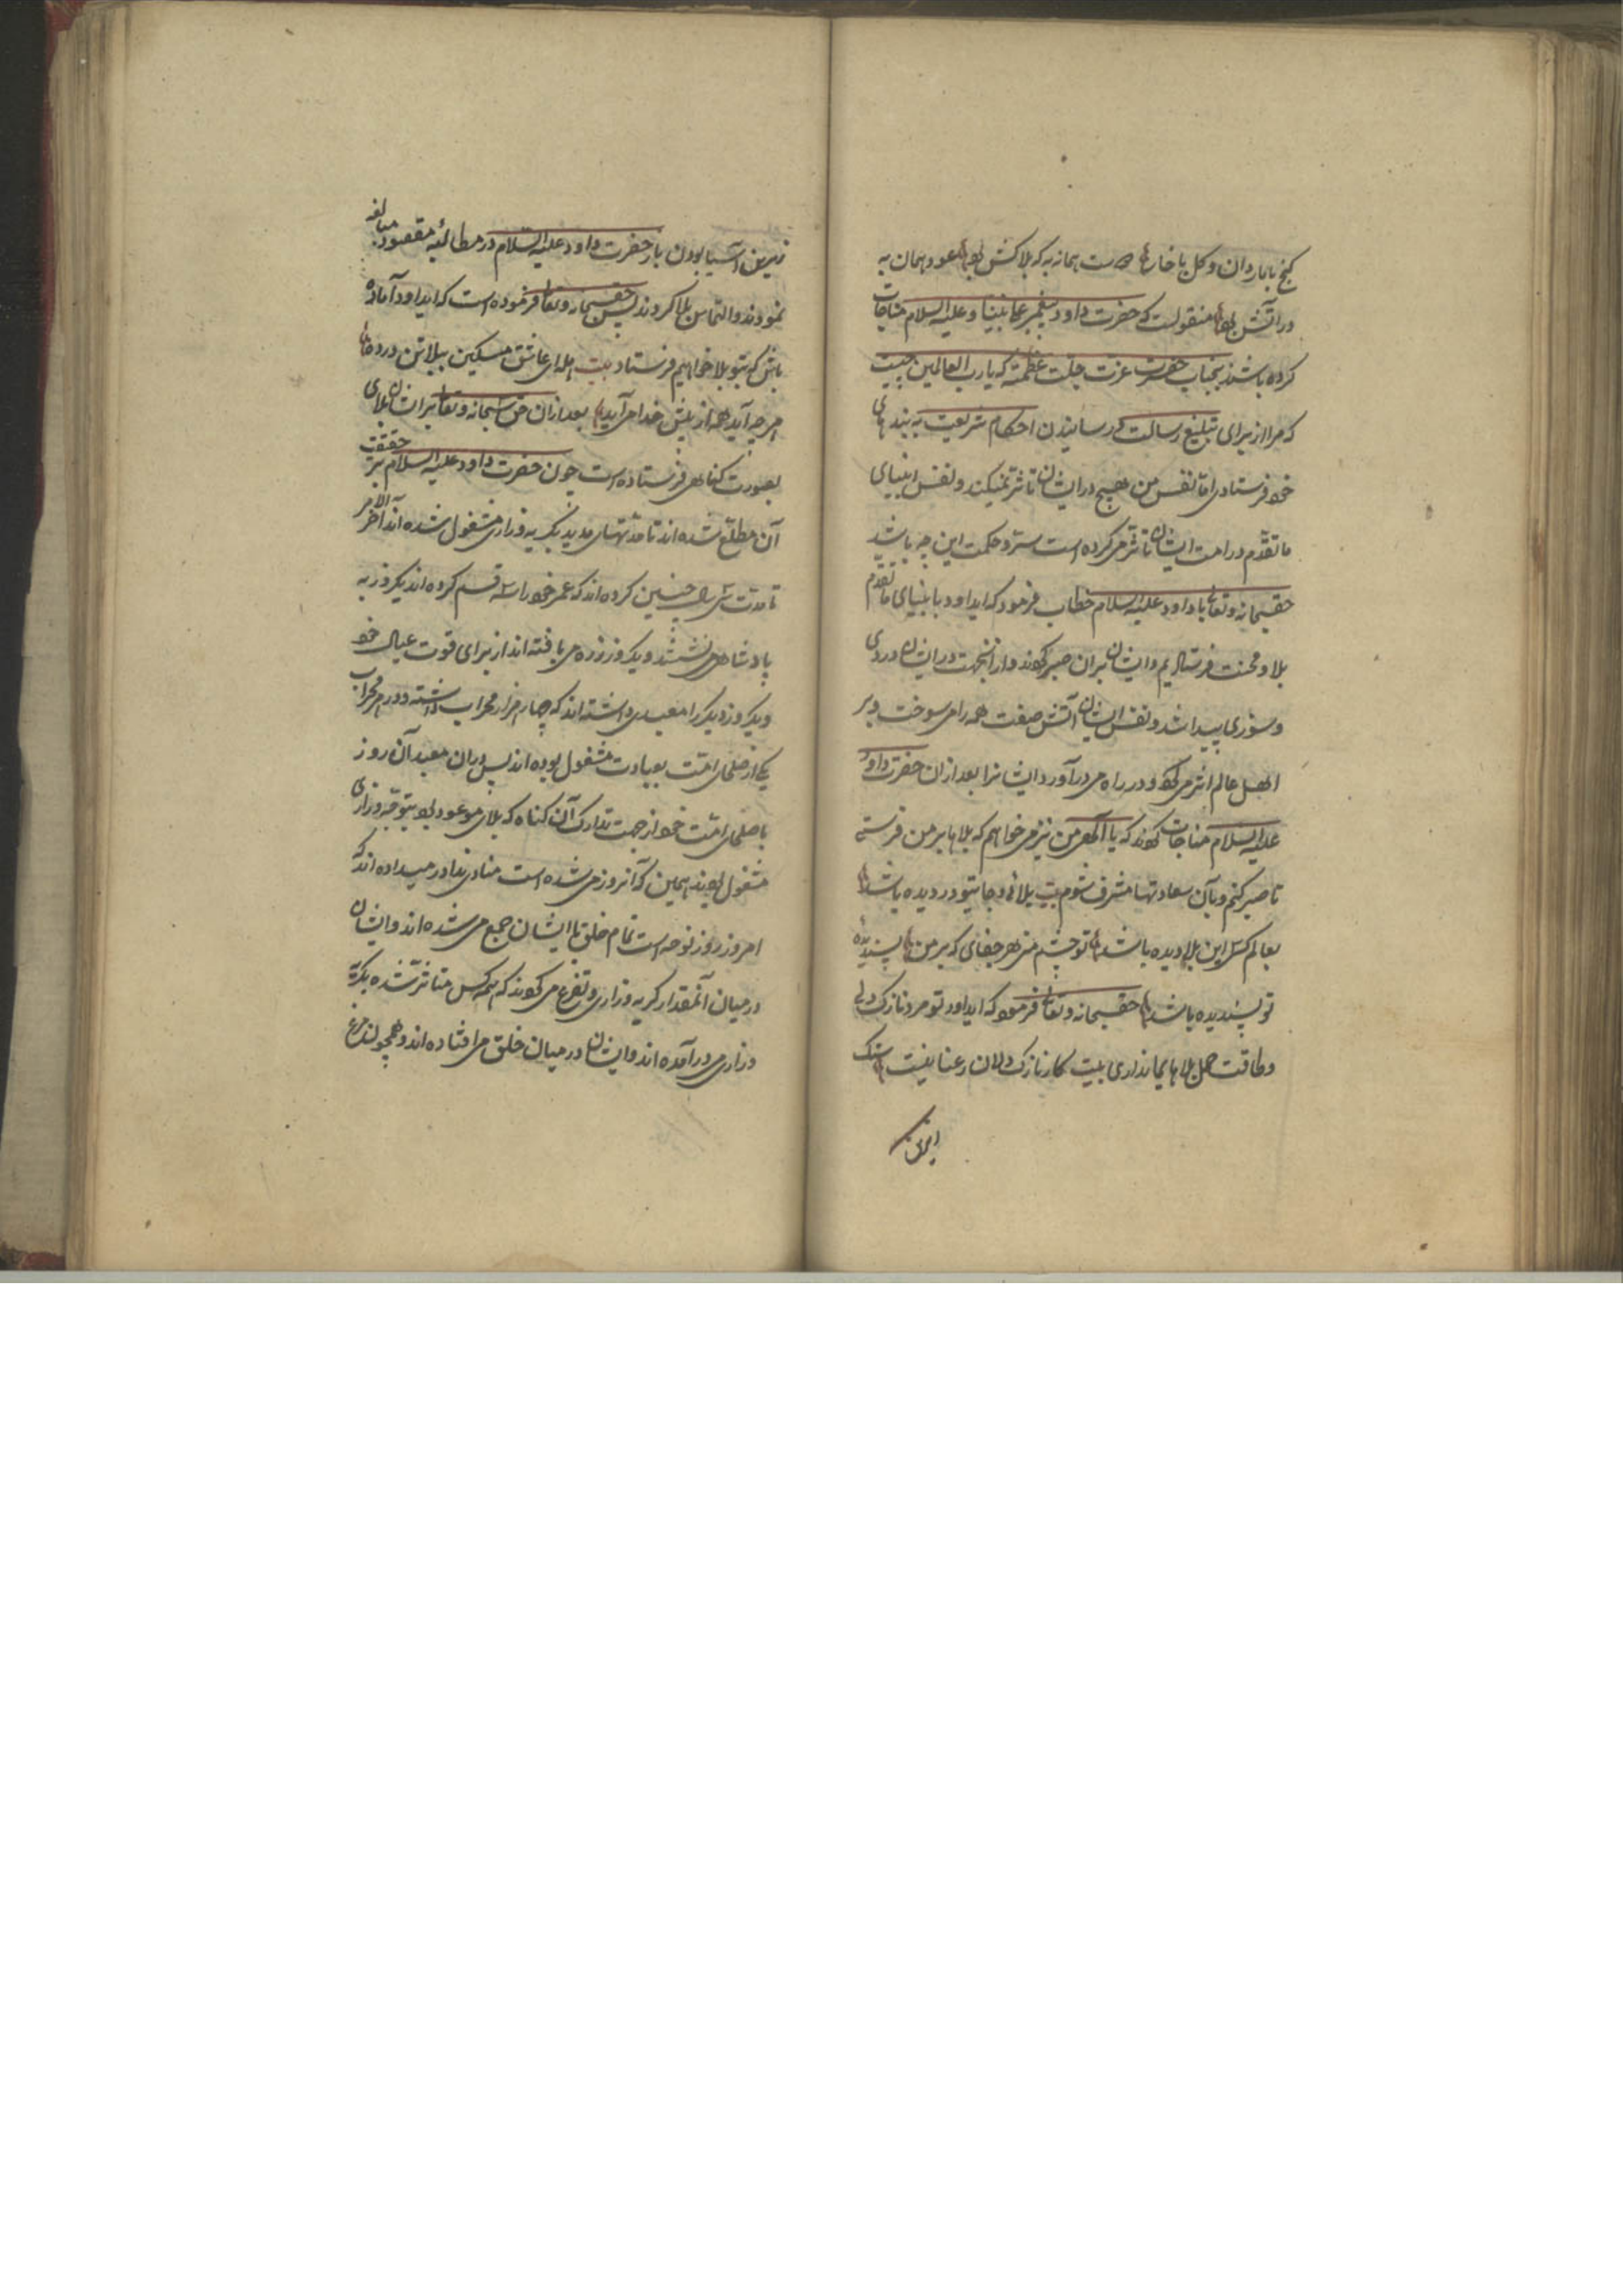 کنج با ماران و کل با خارها است همانه به که بلا کش بود عود همان به
در آتش بود منقولست که حضرت داود پیغمبر علی نبینا و علیه السلام مناجات
کرده باشند بجناب حضرت عزت جلت عظمته که یا رب العالمین چیست
که مرا از برای تبلیغ رسالت و رسانیدن احکام شریعت به بندهای
خود فرستادی اما نفس من هیچ در ایشان تاثر نمیکند و نفس انبیای
ما تقدّم در امت ایشان تاثر می کرده است ستر و حکمت این چه باشد
حقسبحانه و تعالی با داود علیه السلام خطاب فرمود که ایداود با نبیای ما تقدم
بلا و محنت فرستادیم و ایشان بران صبر کردند و از انجهت در ایشان دردی
و سوزی پیدا شد و نفس ایشان آتش صفت همه را می سوخت و بر
اهل عالم اثر می کرد و در راه می درآورد ایشانرا بعد ازان حضرت داود
علیه السلام مناجات کردند که یا الهی من نیز می خواهم که بلاها بر من فرستی
تا صبر کنم و بآن سعادتها مشرف شوم بیت بلائی و جانیتو در دیده باشد
بعالم کس این بلا دیده باشد تو چشم منی هر جفای که بر من پسندیده
تو پسندیده باشد حقسبحانه و تعالی فرمود که ایداود تو مرد نازک دلی
و طاقت حمل بلاهای ما نداری بیت کار نازک دلان رعنا نیست سنک
زیرین آسیا بودن باز حضرت داود علیه السلام در مطالبه مقصود مبالغه
نمودند و التماس بلا کردند پس حقسبحانه و تعالی فرموده است که ایداود آماده
باش که بتو بلا خواهیم فرستاد بیت ای عاشق مسکین ببلا تن درده
هر چه آید همه از پیش خدا می آید بعد ازان حق سبحانه و تعالی بر ایشان بلای
بصورت کناهی فرستاده است چون حضرت داود علیه السلام بر حقیقت
آن مطلع شده اند تا مدتهای مدید بکریه و زاری مشغول شده اند آخر الامر
تا مدت سی سال چنین کرده اند که عمر خود را سه قسم کرده اند یکروز به
پادشاهی می نشستند و یکروز زره می بافته اند از برای قوت عیال خود
و یکروز دیکر را معبدی داشته اند که چهار هزار محراب داشته و در هر محراب
یکی از صلحای امت بعبادت مشغول بوده اند پس دران معبد آن روز
با صلحای امت خود از جهت تدارک آن کناه که بلای موعود بود بتوجه و زاری
مشغول بودند همین که آنروز می شده است منادی ندا در میداده اند که
امروز روز نوحه است تمام خلق با ایشان جمع می شده اند و ایشان
در میان آنمقدار کریه و زاری و تضرع می کردند که همه کس متاثر شده بکریه
و زاری می درآمده اند و ایشان در میان خلق می افتاده اند و همچو لند مرغ